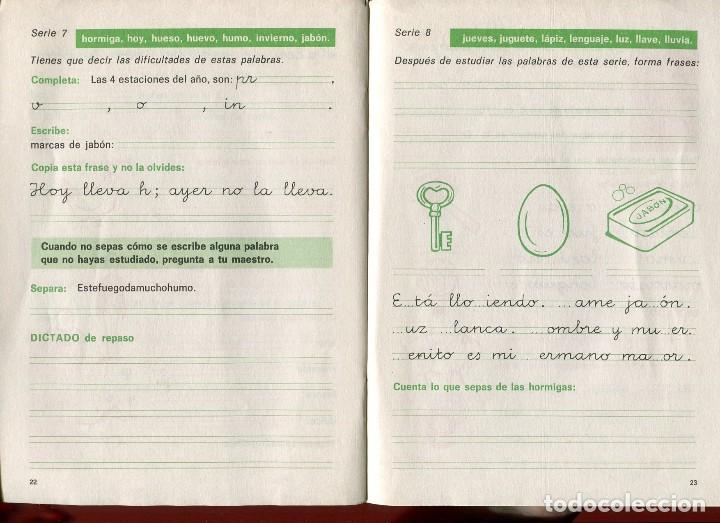 Serie 7 hormiga, hoy, hueso, huevo, humo, invierno, jabón.
Tienes que decir las dificultades de estas palabras.
Completa: Las 4 estaciones del año, son: pr ,
v , o , in .
Escribe:
marcas de jabón:
Copia esta frase y no la olvides:
Hoy lleva h; ayer no la lleva.
Cuando no sepas cómo se escribe alguna palabra
que no hayas estudiado, pregunta a tu maestro.
Separa: Estefuegodamuchohumo.
DICTADO de repaso
22
Serie 8 jueves, juguete, lápiz, lenguaje, luz, llave, lluvia.
Después de estudiar las palabras de esta serie, forma frases:
JABON
E...tá llo...iendo. ...ame ja...ón.
...uz ...lanca. ...ombre y mu...er.
...enito es mi ...ermano ma...or.
Cuenta lo que sepas de las hormigas:
23
todocoleccion.net